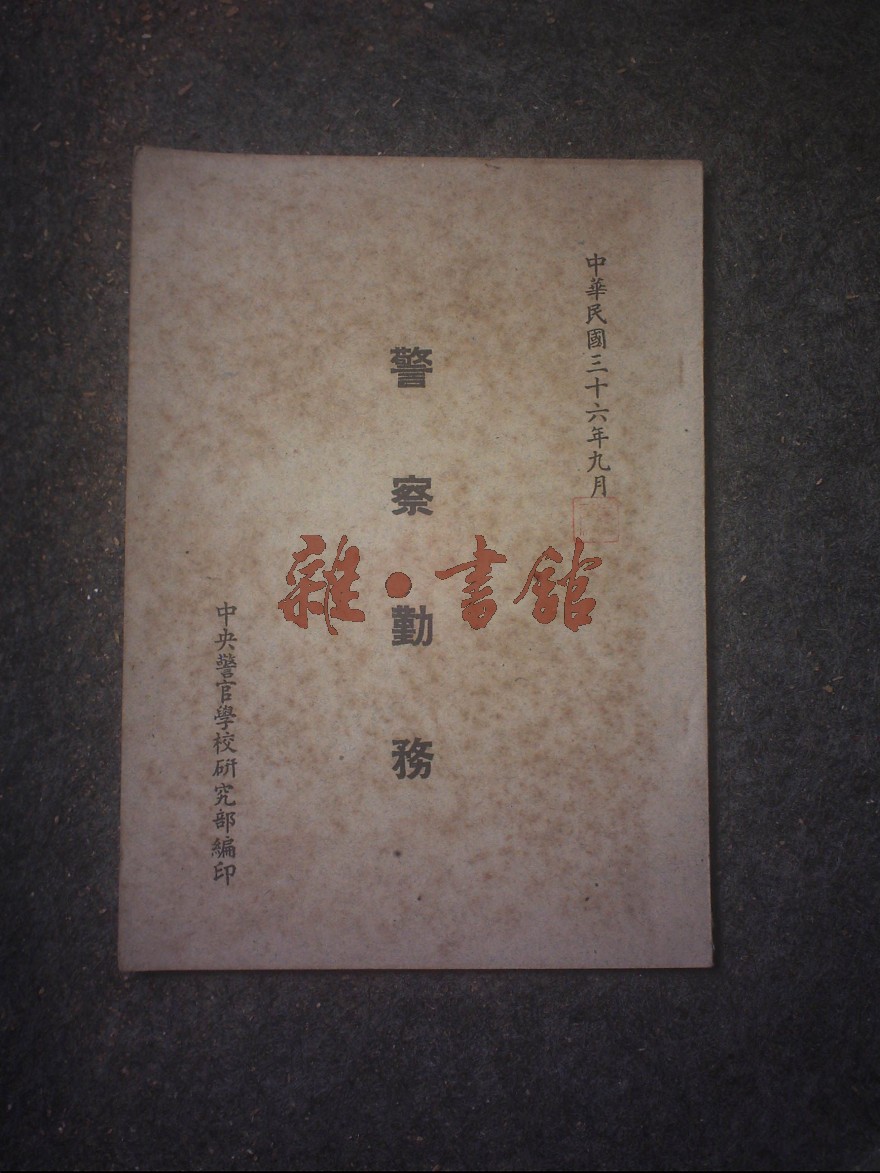 中華民國三十六年九月
警察勤務
中央警官學校研究部編印
雜·書館